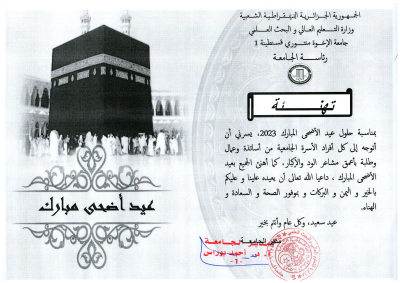 الجمهورية الجزائرية الديمقراطية الشعبية
وزارة التعليم العالي و البحث العلمي
جامعة الإخوة منتوري قسنطينة 1
رئاسة الجامعة
تهنئة
بمناسبة حلول عيد الأضحى المبارك 2023، يسرني أن
أتوجه إلى كل أفراد الأسرة الجامعية من أساتذة وعمال
وطلبة بأعمق مشاعر الود والإكبار، كما أهنئ الجميع بعيد
الأضحى المبارك ، داعيا الله تعالى أن يعيده علينا و عليكم
بالخير و اليمن و البركات و بموفور الصحة و السعادة و
الهناء.
عيد سعيد، وكل عام وأنتم بخير
عيد أضحى مبارك
مدير الجامعة
أحمد بوراس